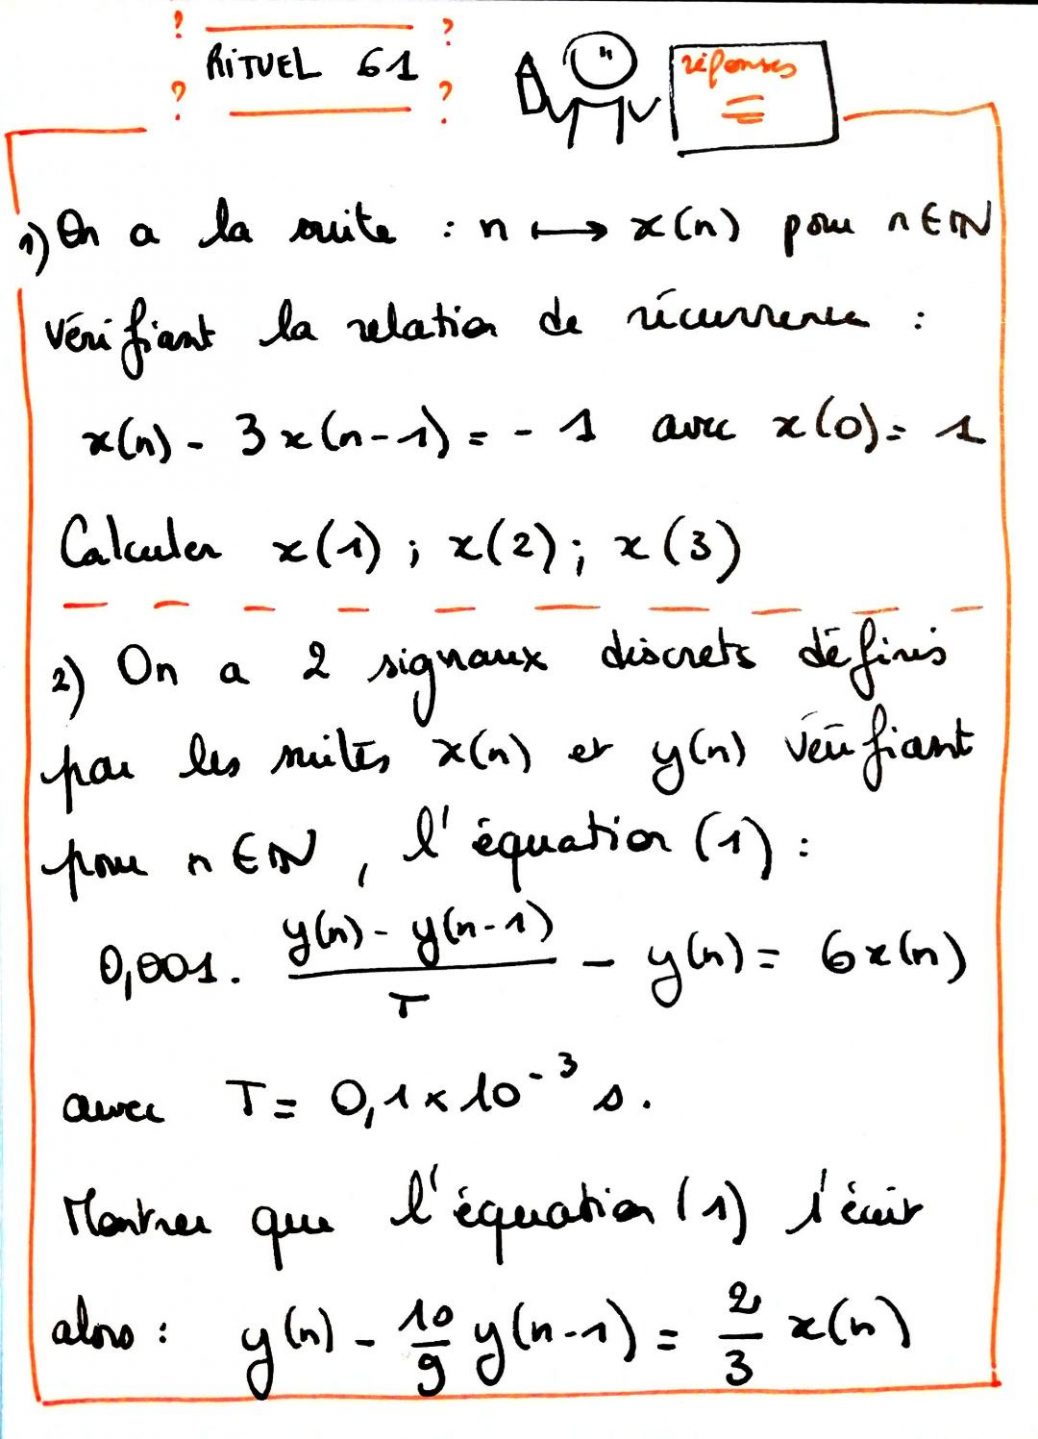 ? ?
RITUEL 61
? ?
réponses
1) On a la suite : n ⟼ x(n) pour n ∈ ℕ
vérifiant la relation de récurrence :
x(n) - 3x(n-1) = -1 avec x(0) = 1
Calculer x(1) ; x(2) ; x(3)
2) On a 2 signaux discrets définis
par les suites x(n) et y(n) vérifiant
pour n ∈ ℕ, l'équation (1) :
0,001. (y(n) - y(n-1))/T - y(n) = 6x(n)
avec T = 0,1 × 10⁻³ s.
Montrer que l'équation (1) s'écrit
alors : y(n) - 10/9 y(n-1) = 2/3 x(n)